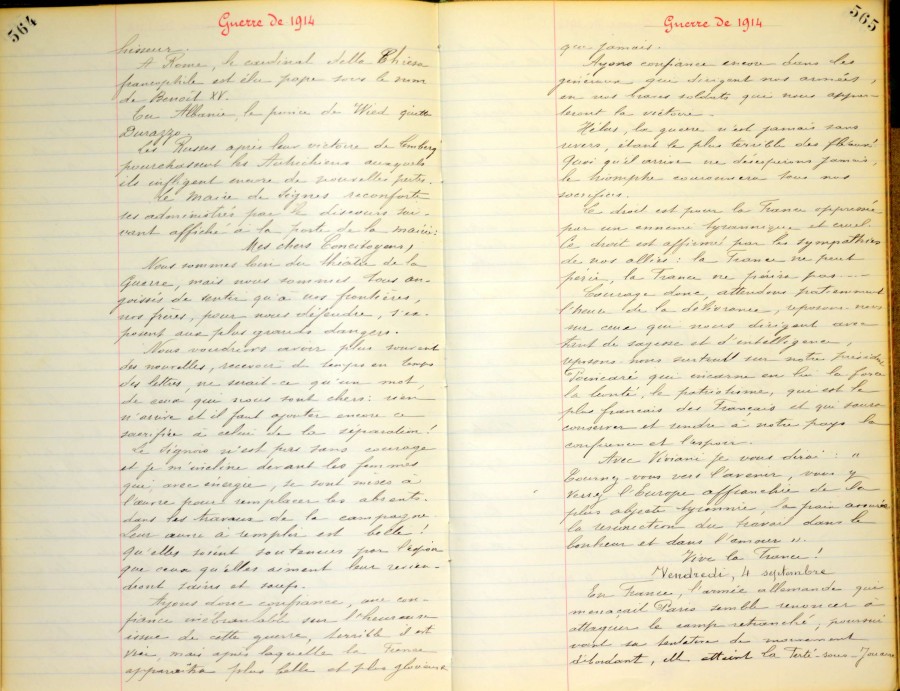 564
Guerre de 1914
A Rome, le cardinal della Chiesa
francophile est élu pape sous le nom
de Benoît XV.
En Albanie, le prince de Wied quitte
Durazzo.
Les Russes après leur victoire de Lemberg
pourchassent les Autrichiens auxquels
ils infligent encore de nouvelles pertes.
Le Maire de Signes réconforte
ses administrés par le discours sui-
vant affiché à la porte de la mairie:
Mes chers Concitoyens,
Nous sommes loin du théâtre de la
Guerre, mais nous sommes tous an-
goissés de sentir qu'à nos frontières,
nos frères, pour nous défendre, s'ex-
posent aux plus grands dangers.
Nous voudrions avoir plus souvent
des nouvelles, recevoir de temps en temps
des lettres, ne serait-ce qu'un mot,
de ceux qui nous sont chers: rien
n'arrive et il faut ajouter encore ce
sacrifice à celui de la séparation!
Le Signois n'est pas sans courage
et je m'incline devant les femmes
qui avec énergie, se sont mises à
l'œuvre pour remplacer les absents
dans les travaux de la campagne.
Leur œuvre à remplir est belle!
Qu'elles soient soutenues par l'espoir
que ceux qu'elles aiment leur revien-
dront sains et saufs.
Ayons donc confiance, une con-
fiance inébranlable sur l'heureuse
issue de cette guerre, terrible il est
vrai mais après laquelle la France
apparaîtra plus belle et plus glorieuse
565
Guerre de 1914
que jamais.
Ayons confiance encore dans les
généraux qui dirigent nos armées,
en nos braves soldats qui nous appor-
teront la victoire.
Hélas, la guerre n'est jamais sans
revers, étant le plus terrible des fléaux!
Quoi qu'il arrive ne désespérons jamais,
le triomphe couronnera tous nos
sacrifices.
Le droit est pour la France opprimée
par un ennemi tyrannique et cruel.
Ce droit est affirmé par les sympathies
de nos alliés: la France ne peut
périr, la France ne périra pas....
Courage donc, attendons patiemment
l'heure de la délivrance, reposons-nous
sur ceux qui nous dirigent avec
tant de sagesse et d'intelligence,
reposons-nous surtout sur notre Président
Poincaré qui incarne en lui la force
la bonté, le patriotisme, qui est le
plus français des Français et qui saura
conserver et rendre à notre pays la
confiance et l'espoir.
Avec Viviani je vous dirai: "
Tournez-vous vers l'avenir, vous y
verrez l'Europe affranchie de la
plus abjecte tyrannie, la paix assurée
la résurrection du travail dans le
bonheur et dans l'amour".
Vive la France!
Vendredi, 4 septembre
En France, l'armée allemande qui
menaçait Paris semble renoncer à
attaquer le camp retranché; poursui-
vant sa tentative de mouvement
débordant, elle atteint la Ferté-sous-Jouarre